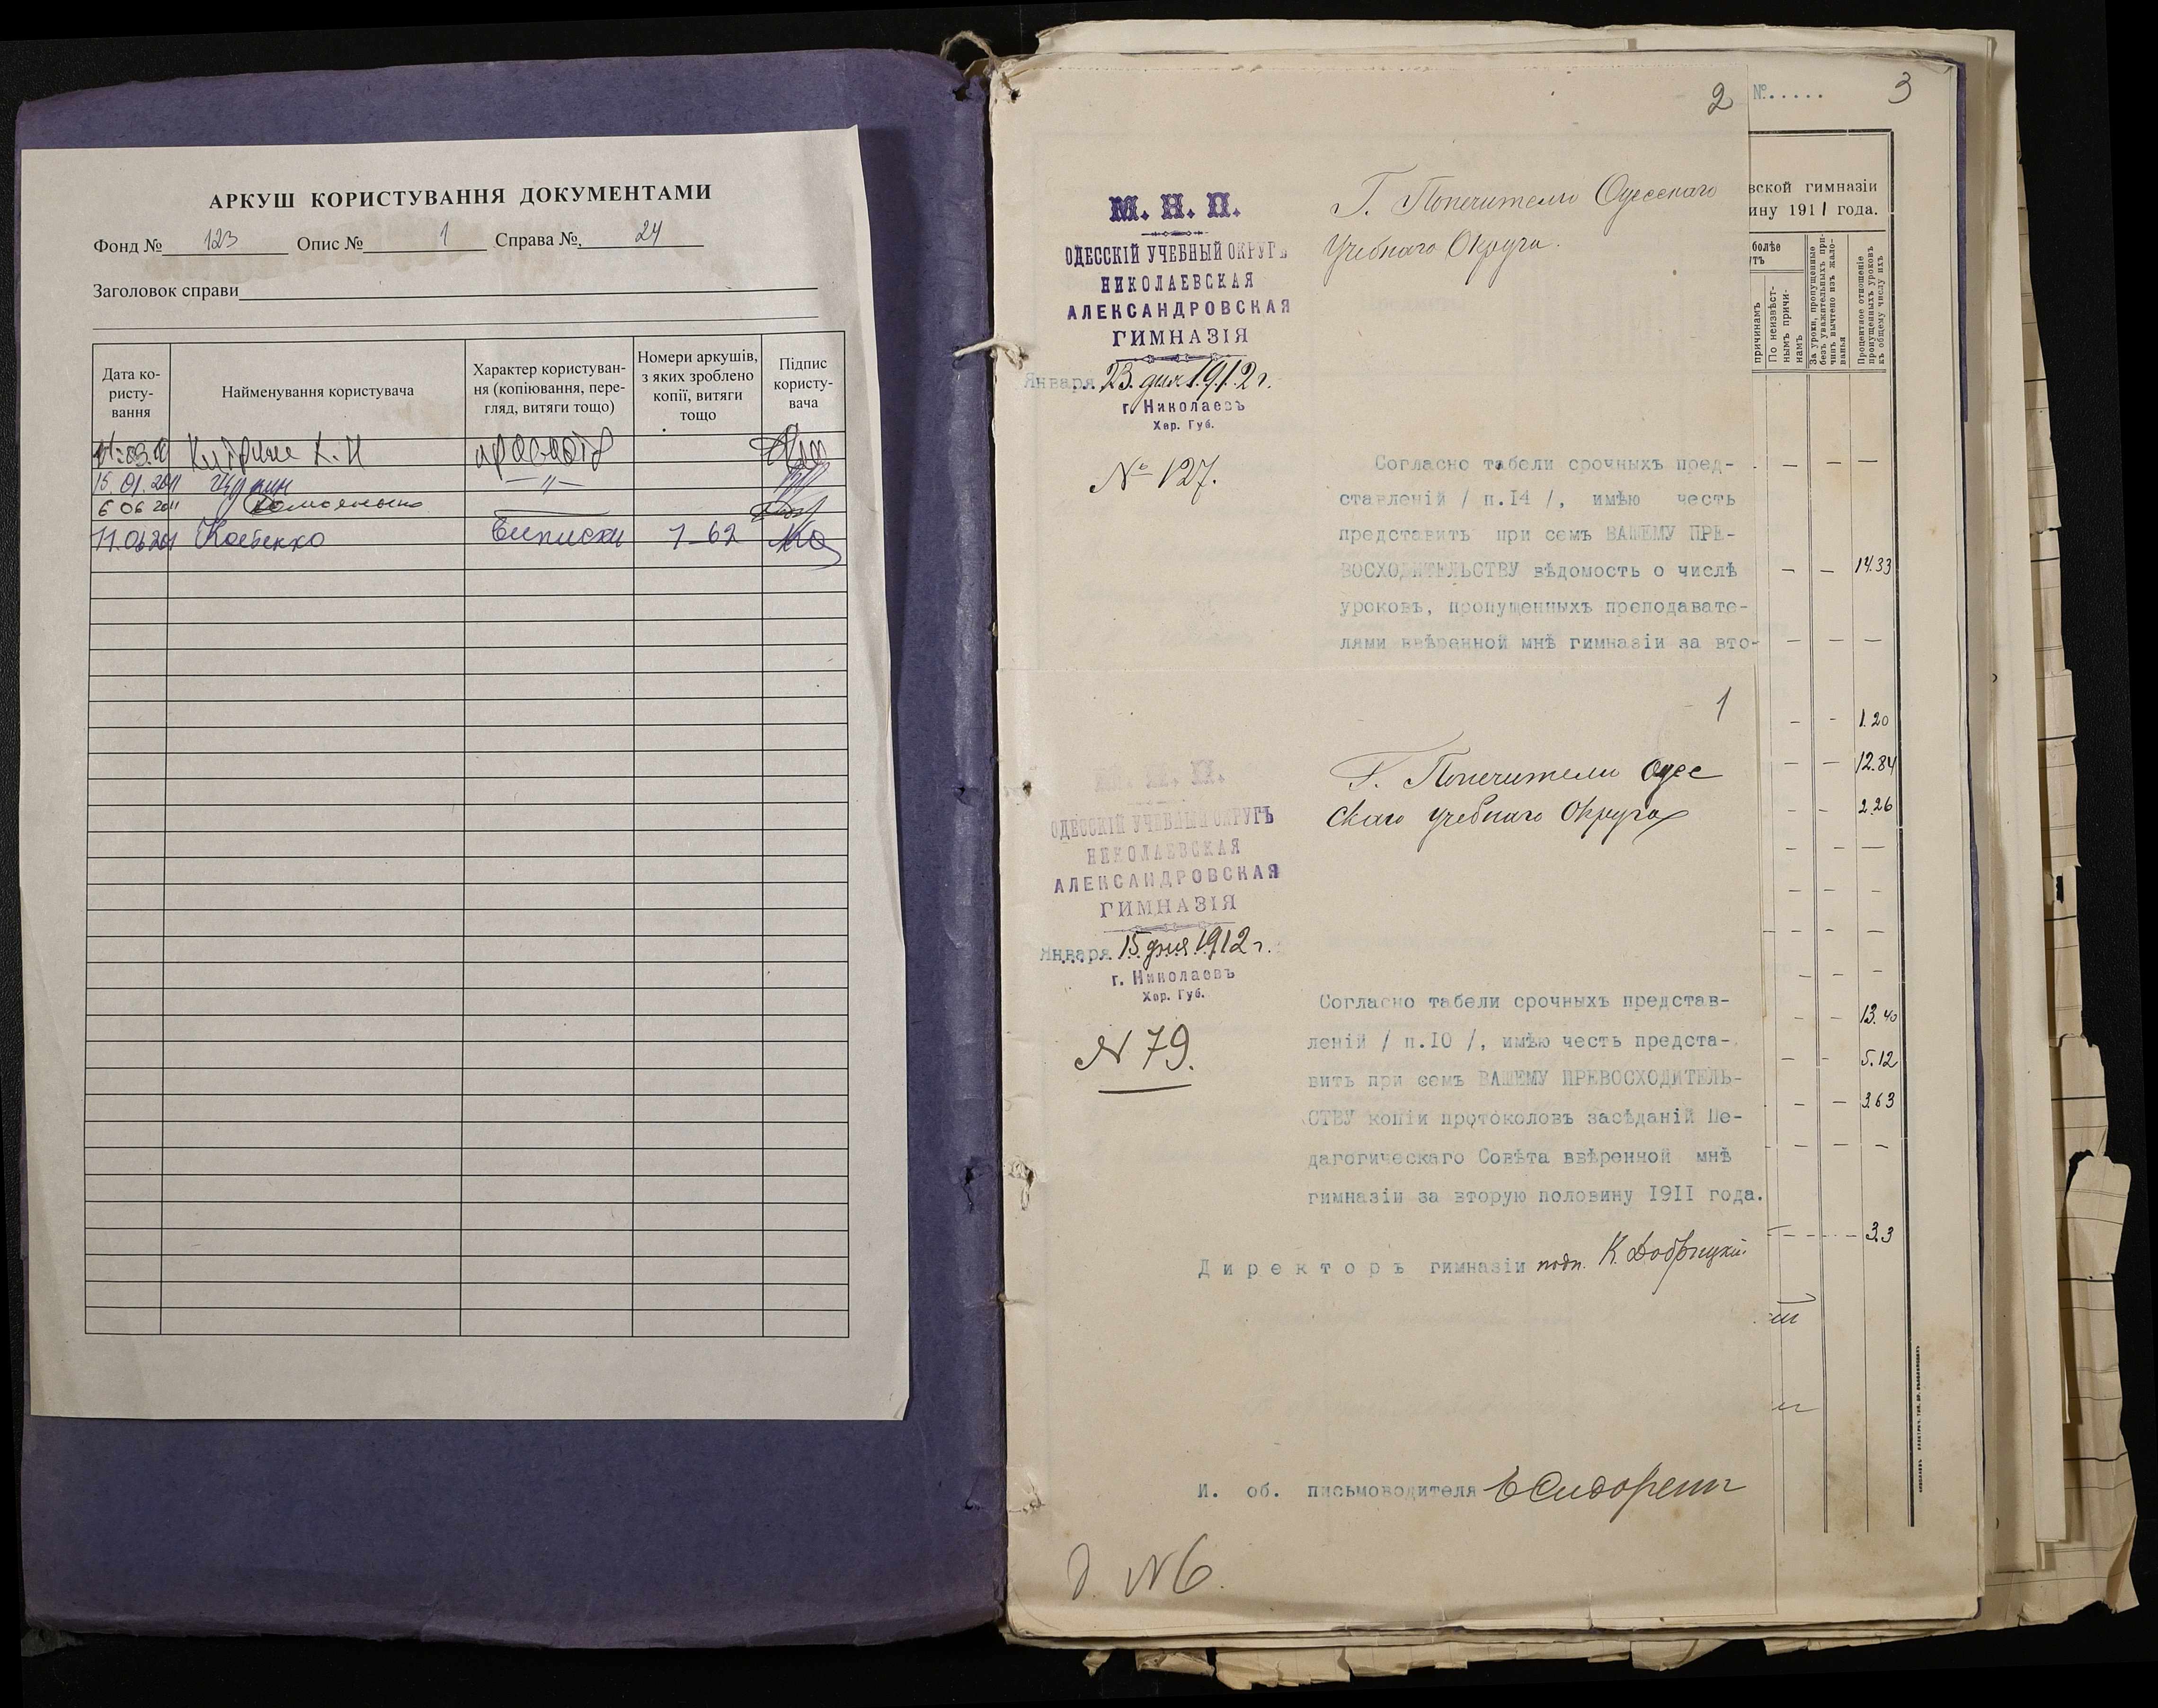 АРКУШ КОРИСТУВАННЯ ДОКУМЕНТАМИ
Фонд № 123 Опис № 1 Справа № 24
Заголовок справи
Дата ко-
ристу-
вання
Найменування користувача
Характер користуван-
ня (копіювання, пере-
гляд, витяги тощо)
Номери аркушів,
з яких зроблено
копії, витяги
тощо
Підпис
користу-
вача
15.01.2011 — " —
6 06 2011
виписки 1-62
2
М. Н. П.
ОДЕССКІЙ УЧЕБНЫЙ ОКРУГЪ
НИКОЛАЕВСКАЯ
АЛЕКСАНДРОВСКАЯ
ГИМНАЗІЯ
Января 23 дня 1912 г.
г. Николаевъ
Хер. Губ.
№ 127.
Г. Попечителю Одесскаго
Учебнаго Округа.
Согласно табели срочныхъ пред-
ставленій / п.I4 /, имѣю честь
представить при семъ ВАШЕМУ ПРЕ-
ВОСХОДИТЕЛЬСТВУ вѣдомость о числѣ
уроковъ, пропущенныхъ преподавате-
лями ввѣренной мнѣ гимназіи за вто-
1
М. Н. П.
ОДЕССКІЙ УЧЕБНЫЙ ОКРУГЪ
НИКОЛАЕВСКАЯ
АЛЕКСАНДРОВСКАЯ
ГИМНАЗІЯ
Января 15 дня 1912 г.
г. Николаевъ
Хер. Губ.
N 79.
Г. Попечителю Одес
скаго учебнаго Округа
Согласно табели срочныхъ представ-
леній / п.IO /, имѣю честь предста-
вить при семъ ВАШЕМУ ПРЕВОСХОДИТЕЛЬ-
СТВУ копіи протоколовъ засѣданій Пе-
дагогическаго Совѣта ввѣренной мнѣ
гимназіи за вторую половину I9II года.
Директоръ гимназіи подп. К. Добрицкій
И. об. письмоводителя
д. N 6.
№..... 3
вской гимназіи
ину 1911 года.
болѣе
утъ
причинамъ
По неизвѣст-
нымъ причи-
намъ
За уроки, пропущенные
безъ уважительныхъ при-
чинъ вычтено изъ жало-
ванья
Процентное отношеніе
пропущенныхъ уроковъ
къ общему числу ихъ
— — —
— — 14.33
— — —
— — 1.20
— — 12.84
— — 2.26
— — —
— — —
— — —
— — —
— — 13.40
— — 5.12
— — 3.63
— — —
3.3